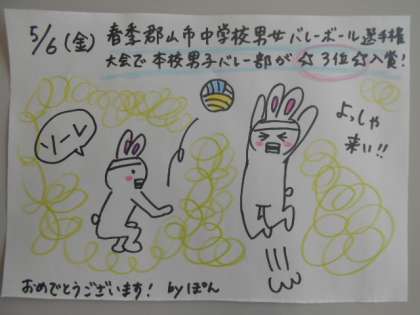 5/6(金) 春季郡山市中学校男女バレーボール選手権
大会で本校男子バレー部が☆3位☆入賞!
ソーレ
よっしゃ
来い!!
おめでとうございます! byぽん